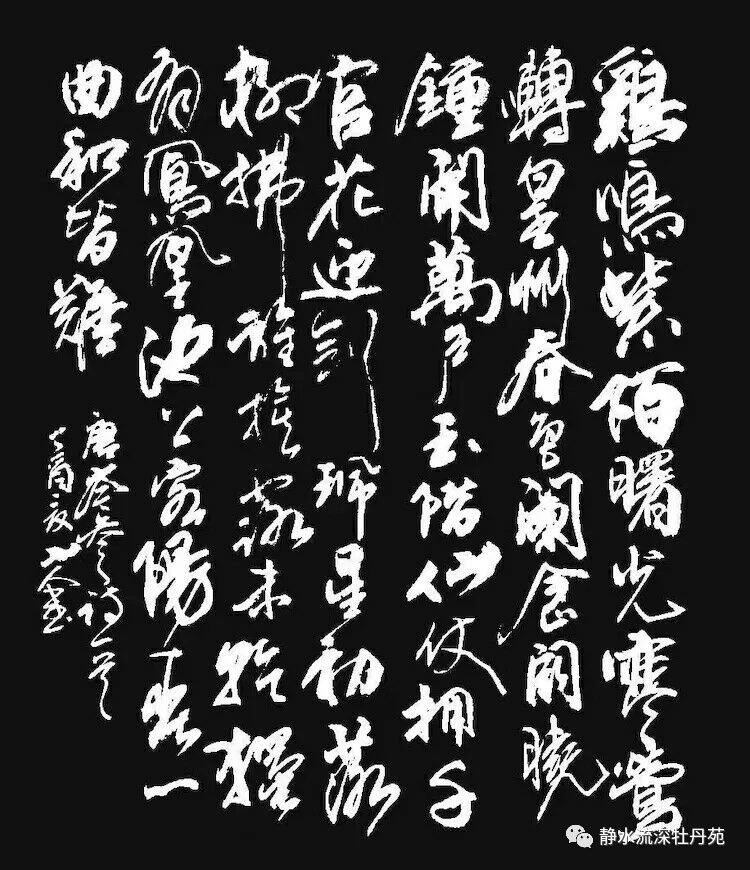 鷄鳴紫陌曙光寒鶯
轉皇州春色闌金闕曉
鍾開萬戶玉階仙仗拥千
官花迎劍珮星初落
柳拂旌旗露未乾獨
有鳳凰池上客陽春一
曲和皆難
唐岑參詩一首
書
静水流深牡丹苑